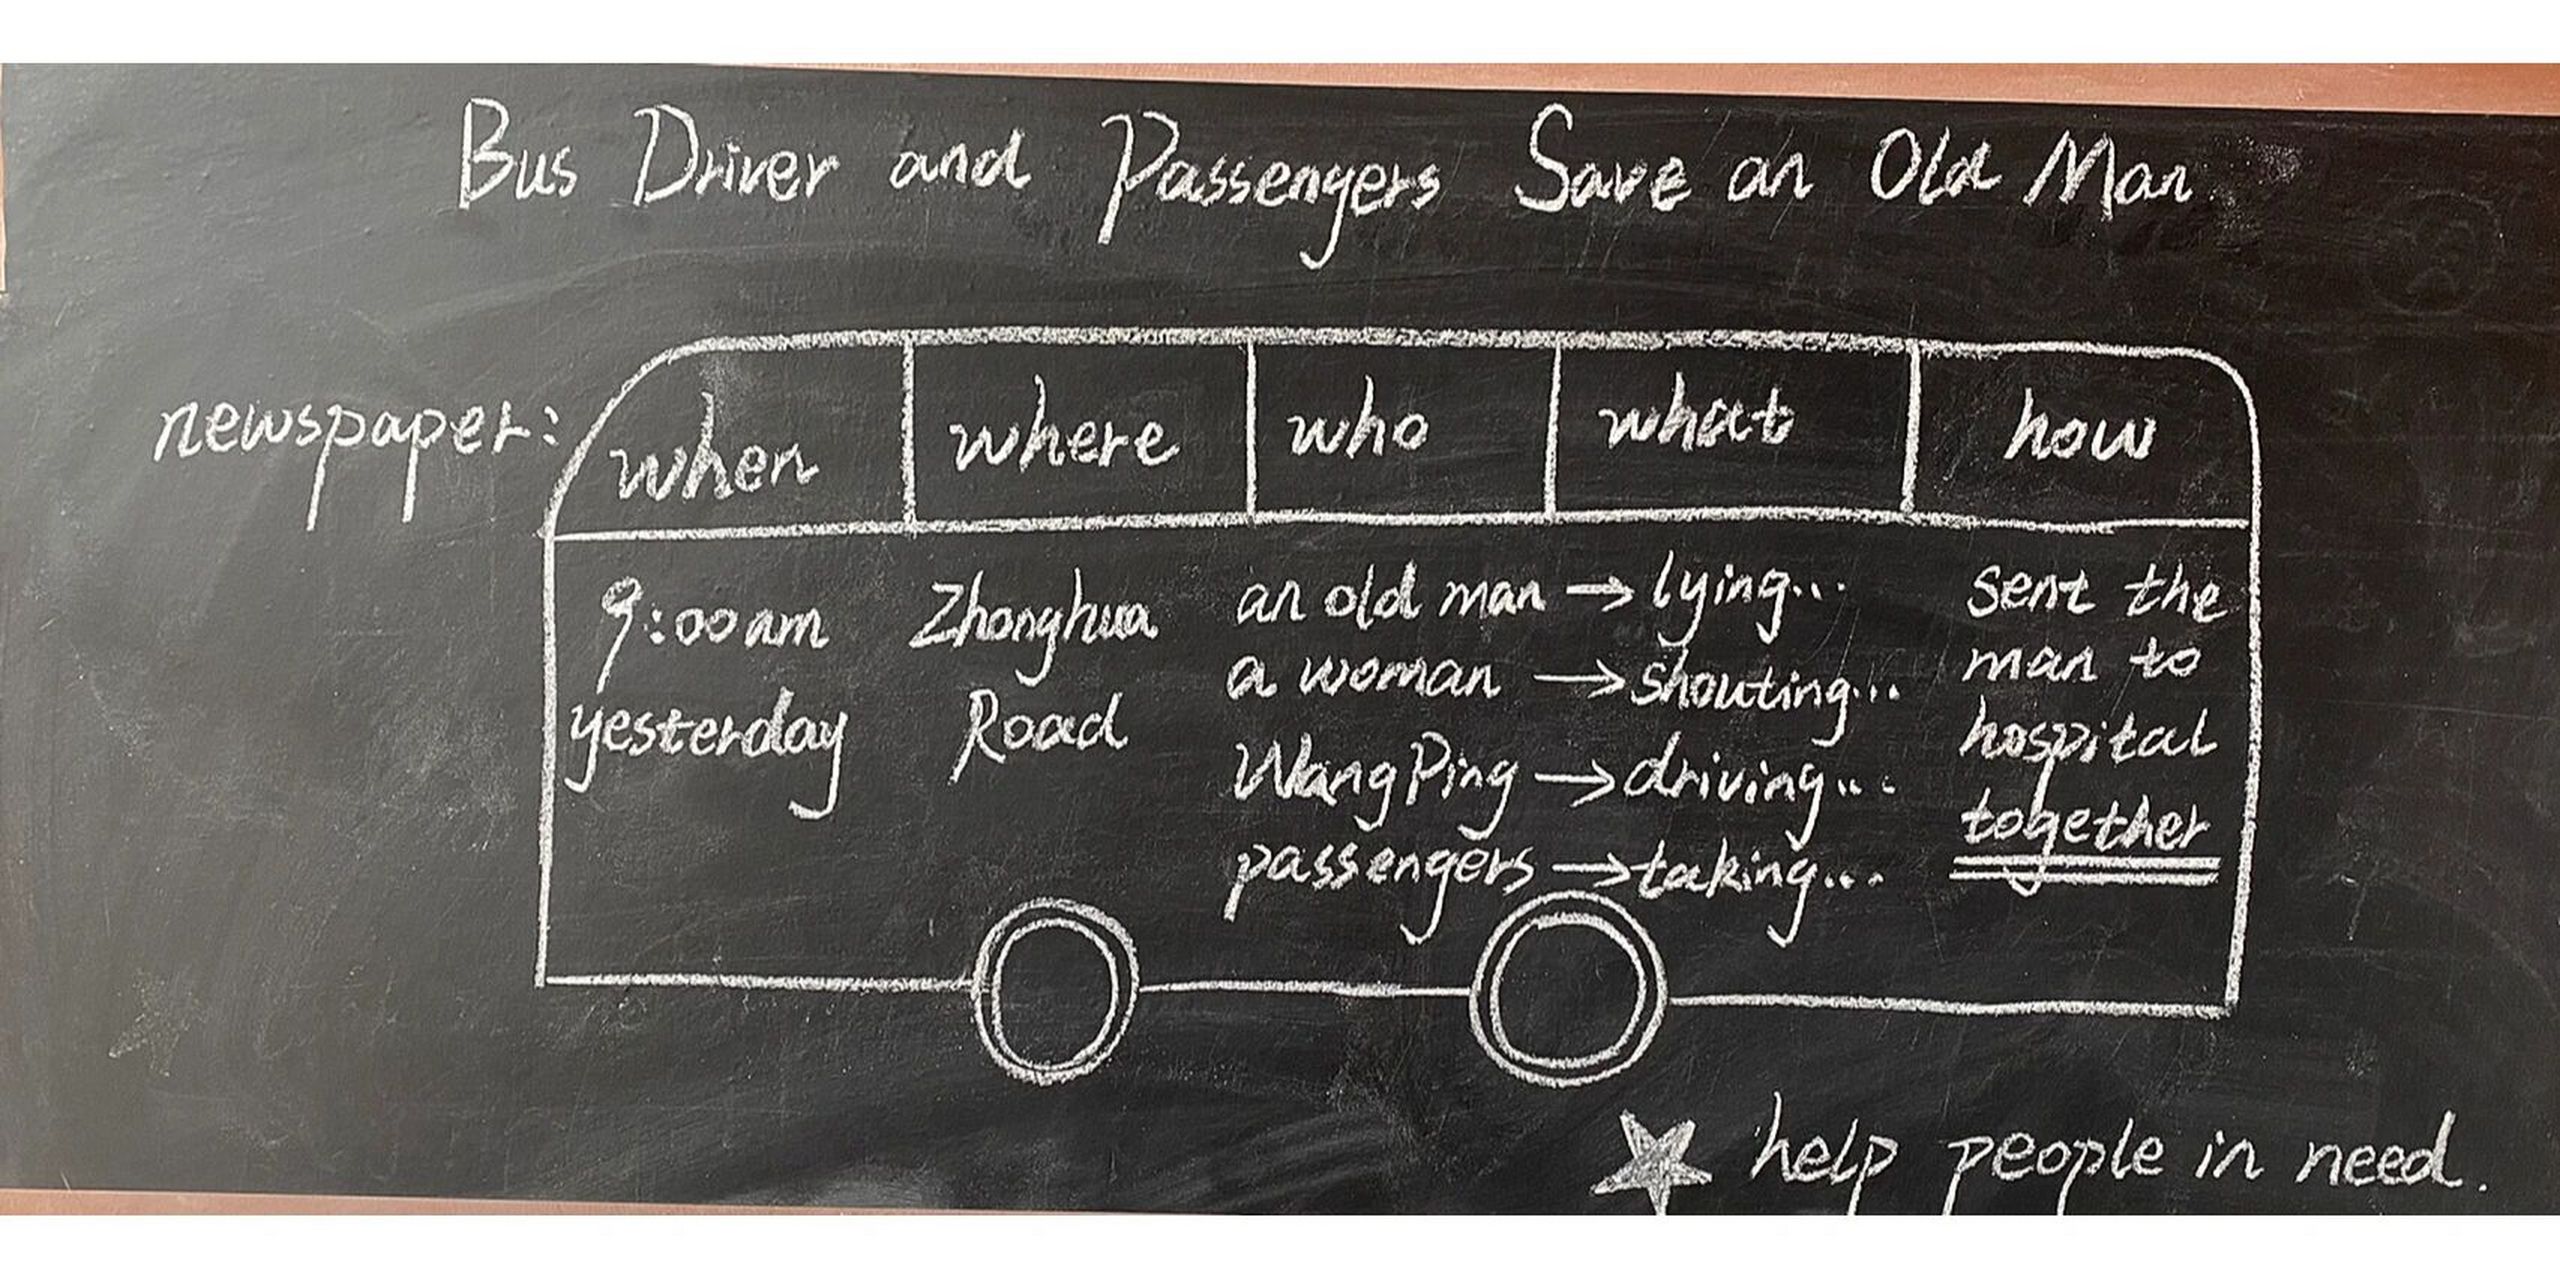 Bus Driver and Passengers Save an Old Man
newspaper:
when where who what how
9:00am
yesterday
Zhonghua
Road
an old man → lying...
a woman → shouting...
Wang Ping → driving...
passengers → taking...
sent the
man to
hospital
together
★ help people in need.